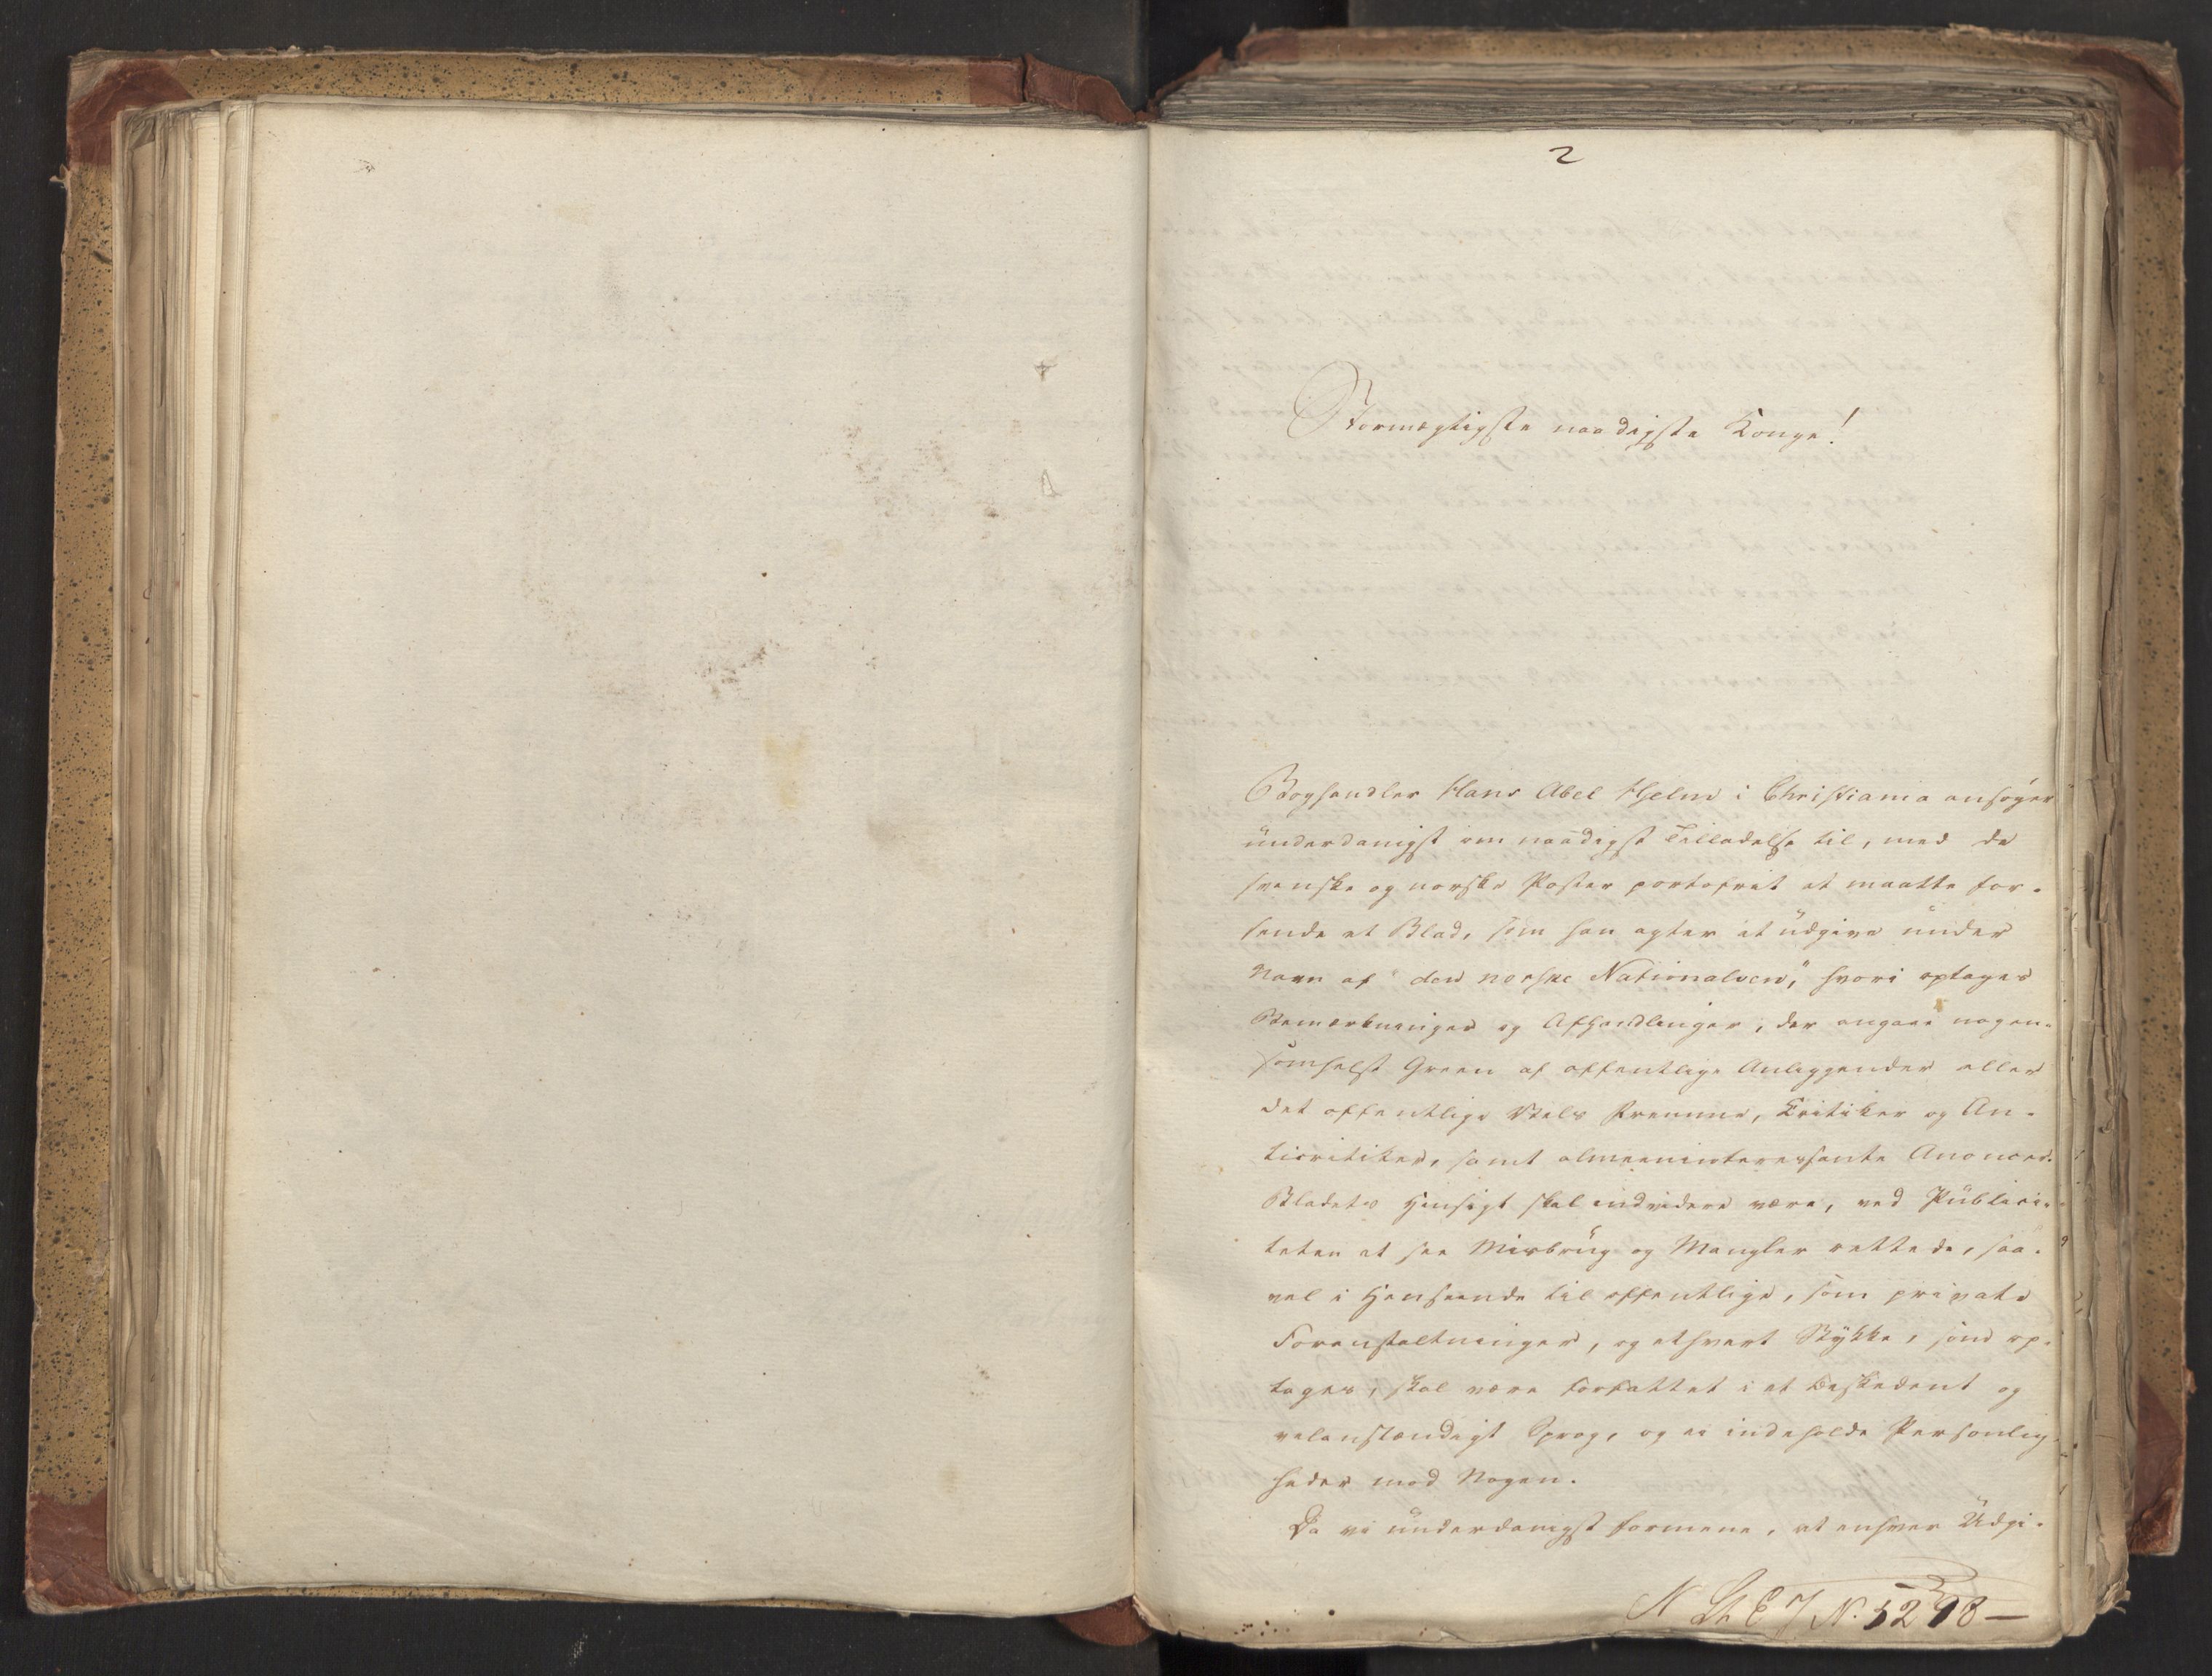 2
Stormægtigste naadigste Konge!
Boghandler Hans Abel Hjelm i Christiania ansøger
underdanigst om naadigst Tilladelse til, med de
svenske og norske Poster portofrit at maatte for-
sende et Blad, som han agter at udgive under
Navn af "den norske Nationalven," hvori optages
Bemærkninger og Afhandlinger, der angaae nogen-
somhelst Green af offentlige Anliggender eller
det offentlige Vels Fremme, Kritiker og An-
ticritiker, samt almeeninteressante Anoncer.
Bladets Hensigt skal endvidere være, ved Publici-
teten at see Misbrug og Mangler rettede, saa-
vel i Henseende til offentlige, som private
Foranstaltninger, og ethvert Stykke, som op-
tages, skal være forfattet i et beskedent og
velanstændigt Sprog, og ei indeholde Personlig-
heder mod Nogen.
Da vi underdanigst formene, at enhver Udgi-
N St E J N. 5298 —